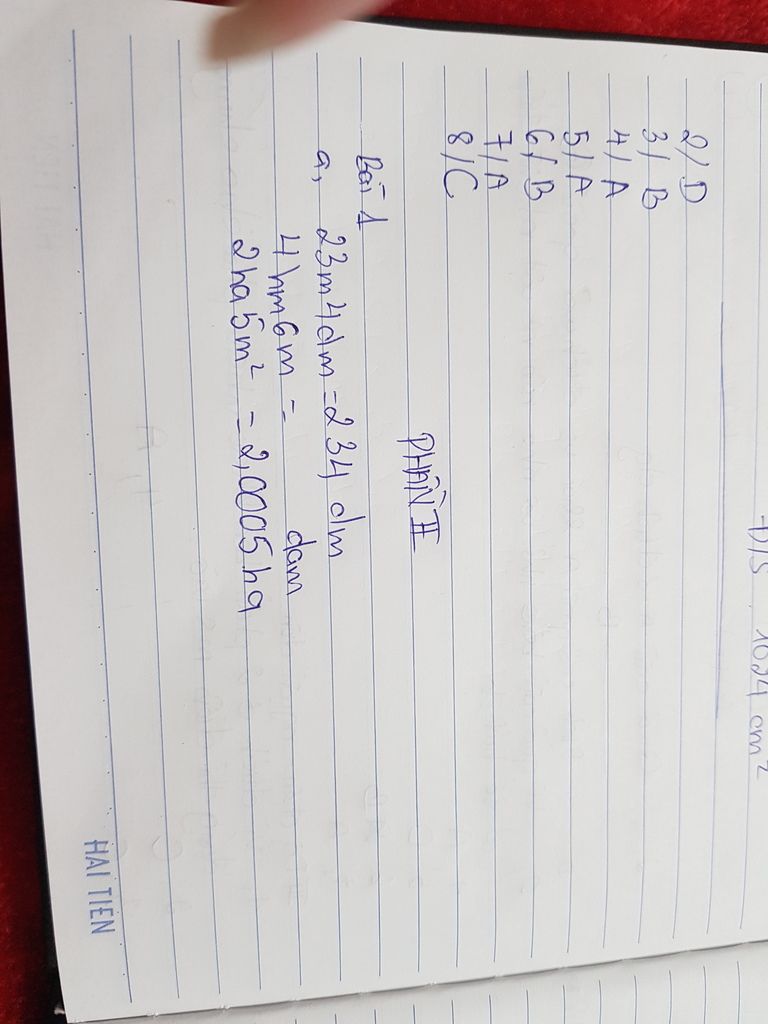 -Đ/S 1694 cm²
2/ D
3/ B
4/ A
5/ A
6/ B
7/ A
8/ C
PHẦN II
Bài 1
a, 23m4dm = 234 dm
4hm6m = dam
2ha5m² = 2,0005 ha
HẢI TIẾN